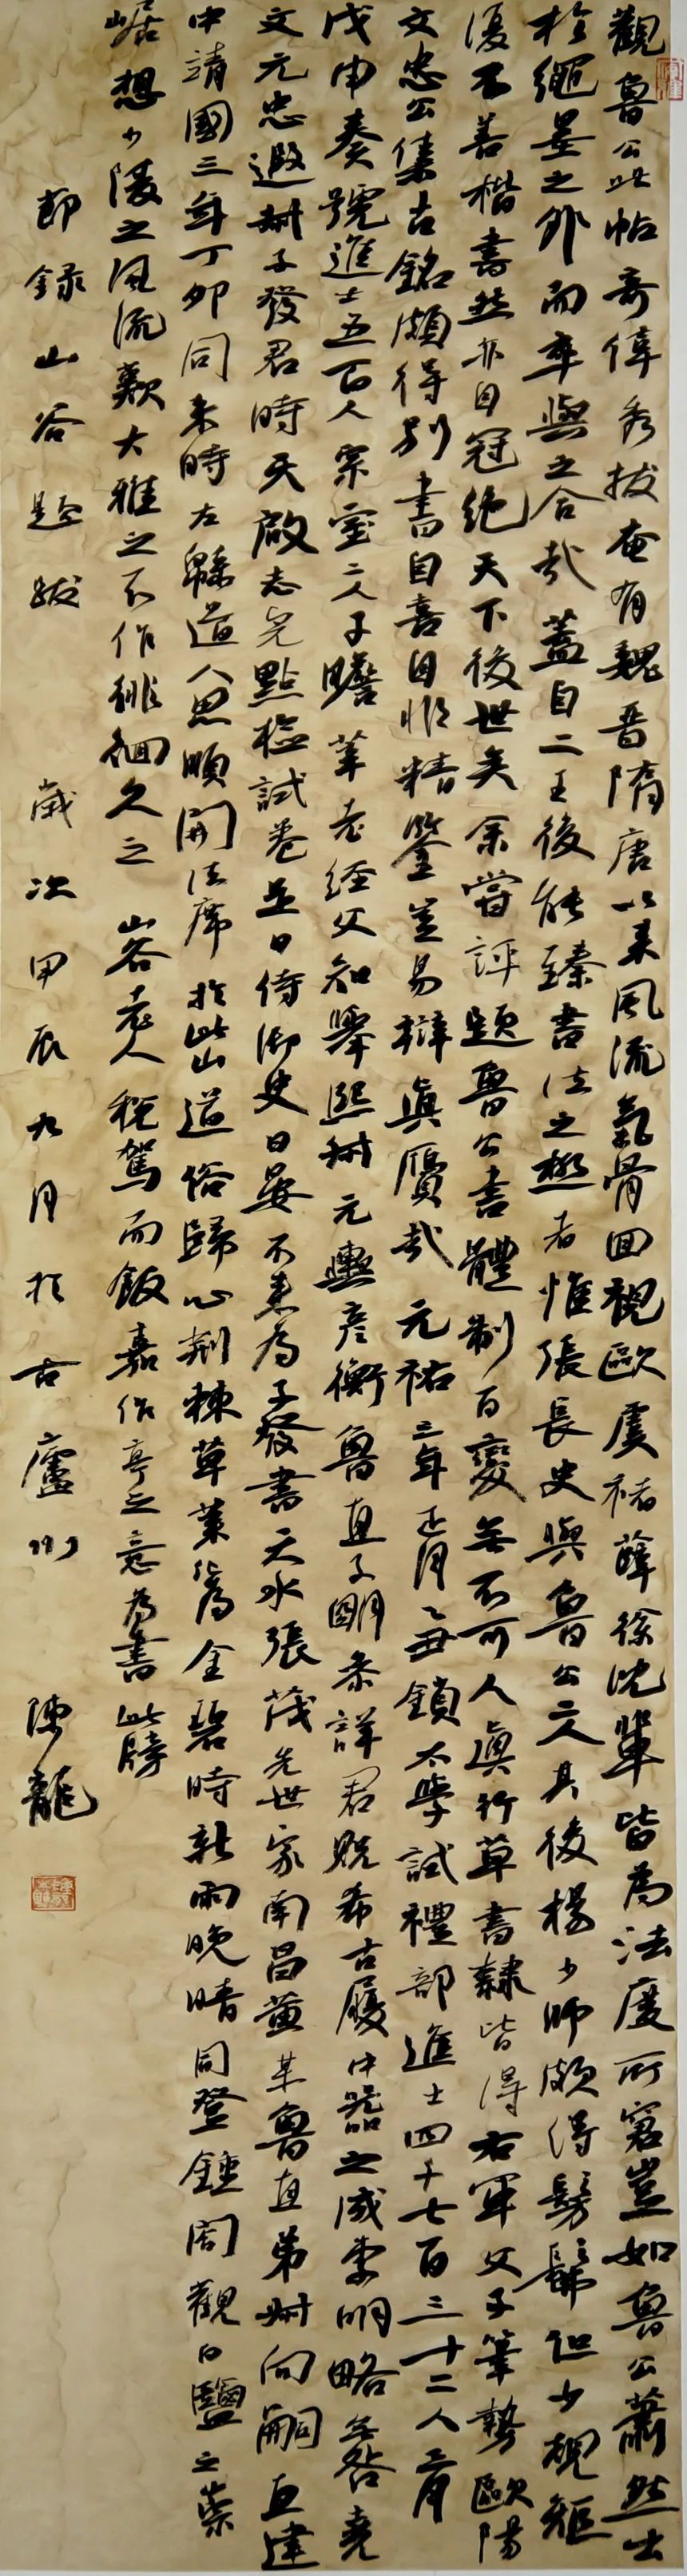 觀魯公此帖奇偉秀拔奄有魏晉隋唐以來風流氣骨回視歐虞褚薛徐沈輩皆為法度所窘豈如魯公蕭然出
於繩墨之外而卒與之合哉蓋自二王後能臻書法之極者惟張長史與魯公二人其後楊少師頗得髣髴但少規矩
復不善楷書然亦自冠絕天下後世矣余嘗評題魯公書體制百變無不可人真行草書隸皆得右軍父子筆勢歐陽
文忠公集古銘頗得別書自喜自非精鑒豈易辯真贗哉元祐三年正月乙丑鎖太學試禮部進士四千七百三十二人三月
戊申奏號進士五百人宗室二人子瞻莘老經父知舉熙叔元輿彥衡魯直子明參詳君貺希古履中器之成季明略無咎堯
文元忠遐叔子發君時天啟志完點檢試卷是日侍御史日晏不來為子發書天水張茂先世家南昌黃某魯直弟叔向嗣直建
中靖國三年丁卯同來時左緜道人思順開法席於此山道俗歸心荊棘草萊化為金碧時新雨晚晴同登鍾閣觀白鹽之崇
崛想少陵之風流歎大雅之不作徘徊久之 山谷老人稅駕而飯嘉作亭之意為書此牓
節錄山谷題跋 歲次甲辰九月於古廬州 陳龍